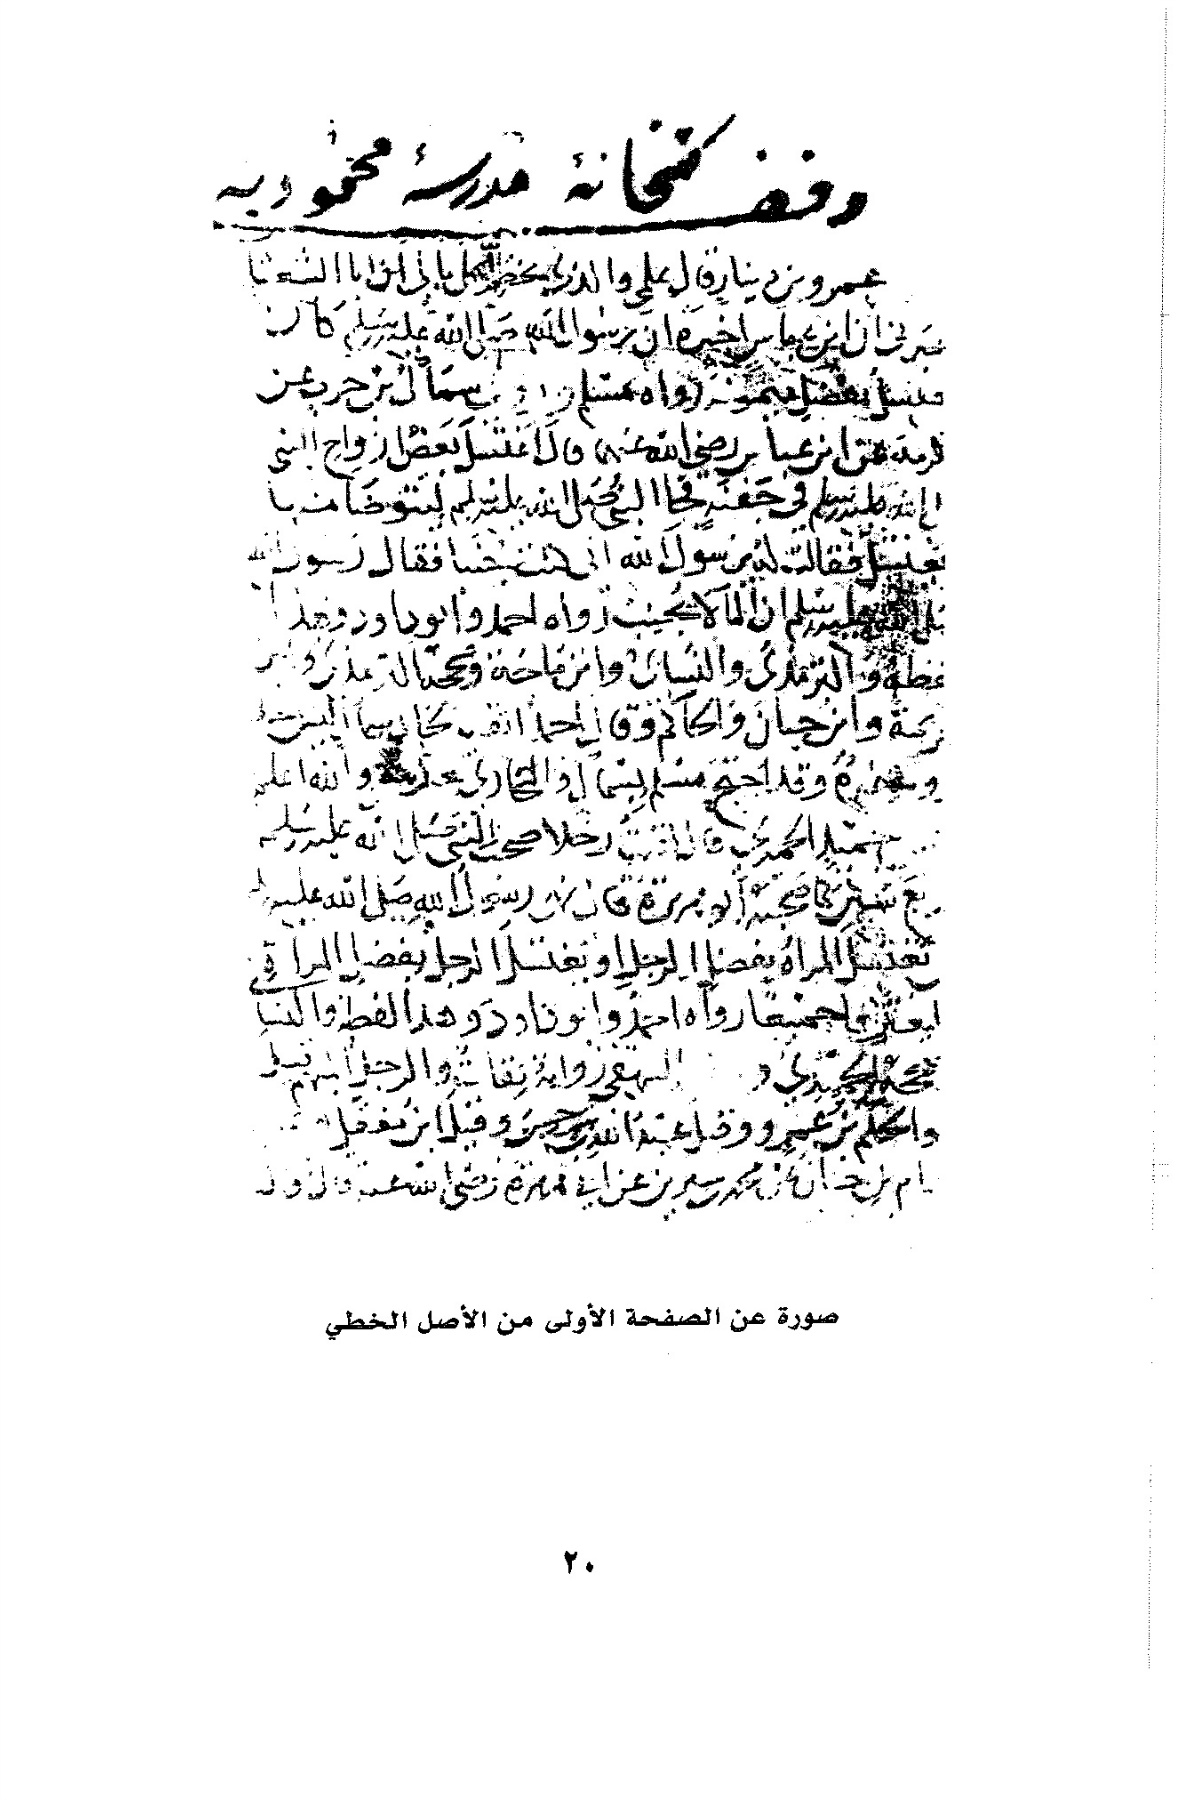 وقف كتبخانهٔ مدرسهٔ محموديه
عمرو بن دينار قال علمي والذي يخطر على بالي ان ابا الشعثا
خبرني ان ابن عباس اخبره ان رسول الله صلى الله عليه وسلم كان
يغتسل بفضل ميمونة رواه مسلم وروى سماك بن حرب عن
عكرمة عن ابن عباس رضي الله عنهما قال اغتسل بعض ازواج النبي
صلى الله عليه وسلم في جفنة فجا النبي صلى الله عليه وسلم ليتوضا منها
يغتسل فقالت له يا رسول الله اني كنت جنبا فقال رسول الله
صلى الله عليه وسلم ان الما لا يجنب رواه احمد وابو داود وهذا
لفظه والترمذي والنسائي وابن ماجة وصححه الترمذي وابن
خزيمة وابن حبان والحاكم وقال احمد اتقيه لحال سماك ليس احد
يرويه غيره وقد احتج مسلم بسماك والبخاري بعكرمة والله اعلم
حميد الحميري قال لقيت رجلا صحب النبي صلى الله عليه وسلم
اربع سنين كما صحبه ابو هريرة قال نهى رسول الله صلى الله عليه وسلم
تغتسل المراة بفضل الرجل او يغتسل الرجل بفضل المراة
ليغترفا جميعا رواه احمد وابو داود وهذا لفظه والنسا
وصححه الحميدي و البيهقي رواته ثقات والرجل المبهم قيل
والحكم بن عمرو وقيل عبد الله بن سرجس وقيل ابن مغفل
هشام بن حسان عن محمد بن سيرين عن ابي هريرة رضي الله عنه قال قال
صورة عن الصفحة الأولى من الأصل الخطي
٢٠